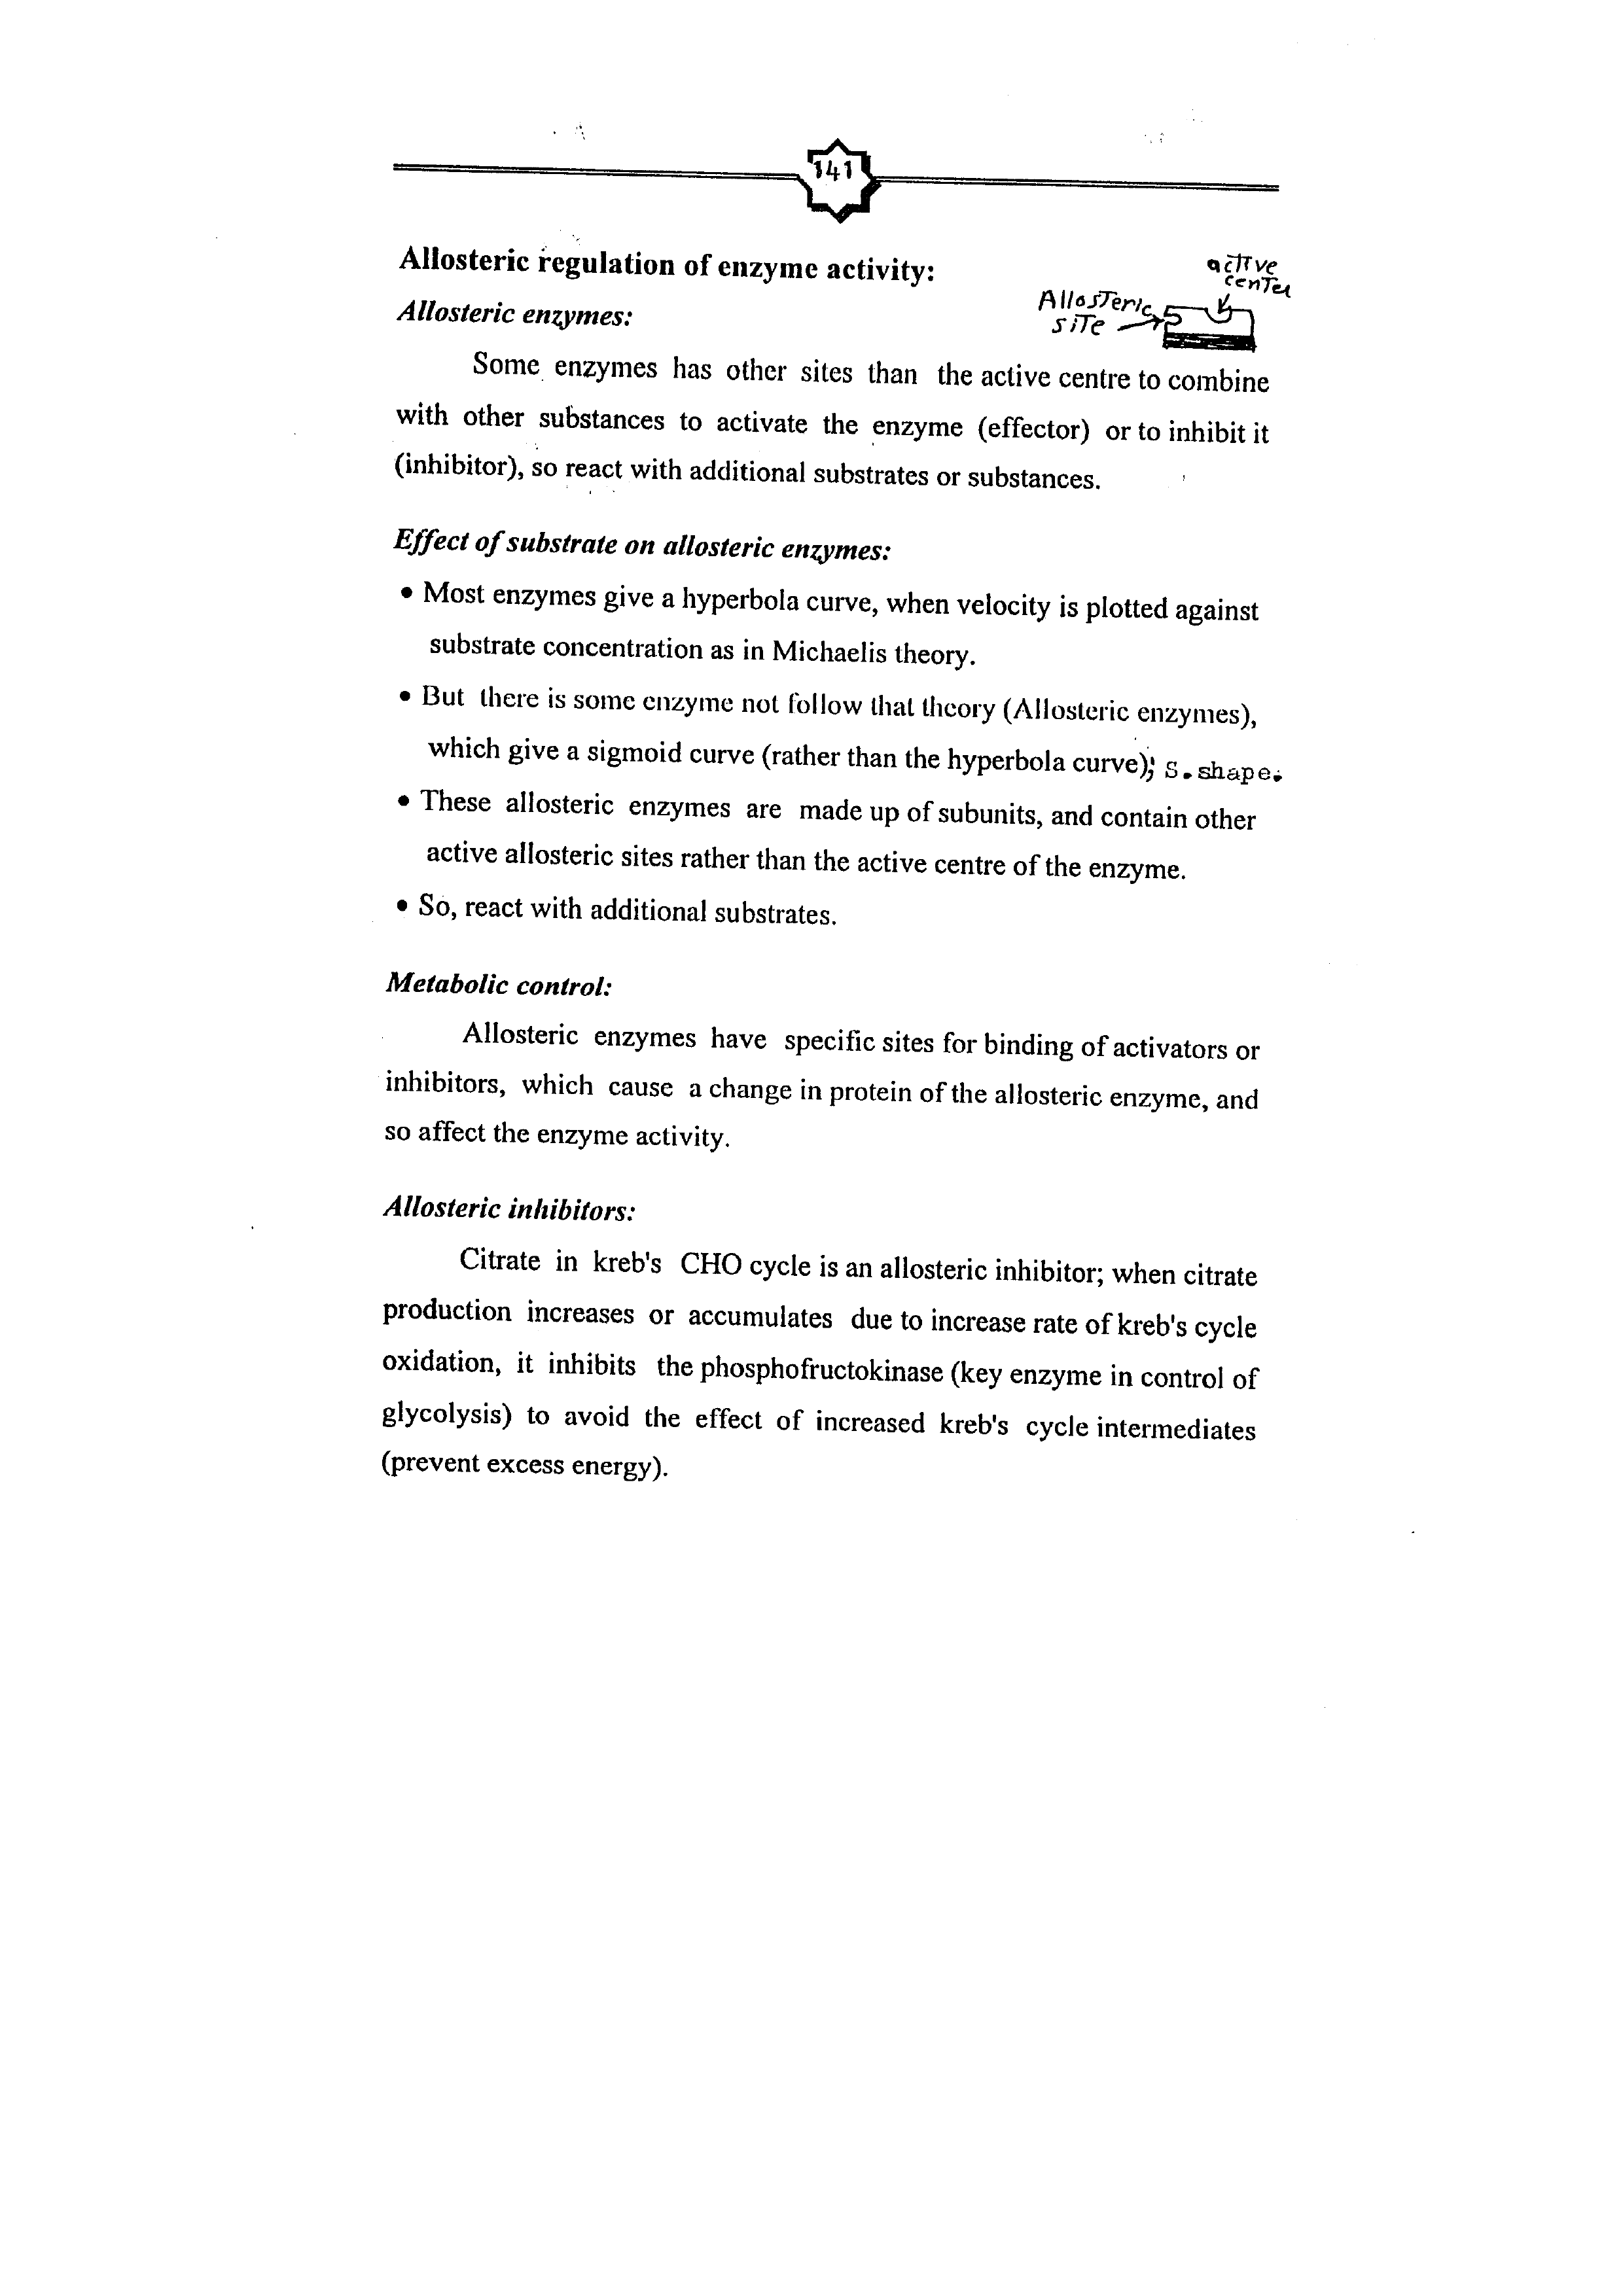 141
Allosteric regulation of enzyme activity:
active
center
Allosteric
site
Allosteric enzymes:
Some enzymes has other sites than the active centre to combine
with other substances to activate the enzyme (effector) or to inhibit it
(inhibitor), so react with additional substrates or substances.
Effect of substrate on allosteric enzymes:
• Most enzymes give a hyperbola curve, when velocity is plotted against
substrate concentration as in Michaelis theory.
• But there is some enzyme not follow that theory (Allosteric enzymes),
which give a sigmoid curve (rather than the hyperbola curve); S.shape.
• These allosteric enzymes are made up of subunits, and contain other
active allosteric sites rather than the active centre of the enzyme.
• So, react with additional substrates.
Metabolic control:
Allosteric enzymes have specific sites for binding of activators or
inhibitors, which cause a change in protein of the allosteric enzyme, and
so affect the enzyme activity.
Allosteric inhibitors:
Citrate in kreb's CHO cycle is an allosteric inhibitor; when citrate
production increases or accumulates due to increase rate of kreb's cycle
oxidation, it inhibits the phosphofructokinase (key enzyme in control of
glycolysis) to avoid the effect of increased kreb's cycle intermediates
(prevent excess energy).